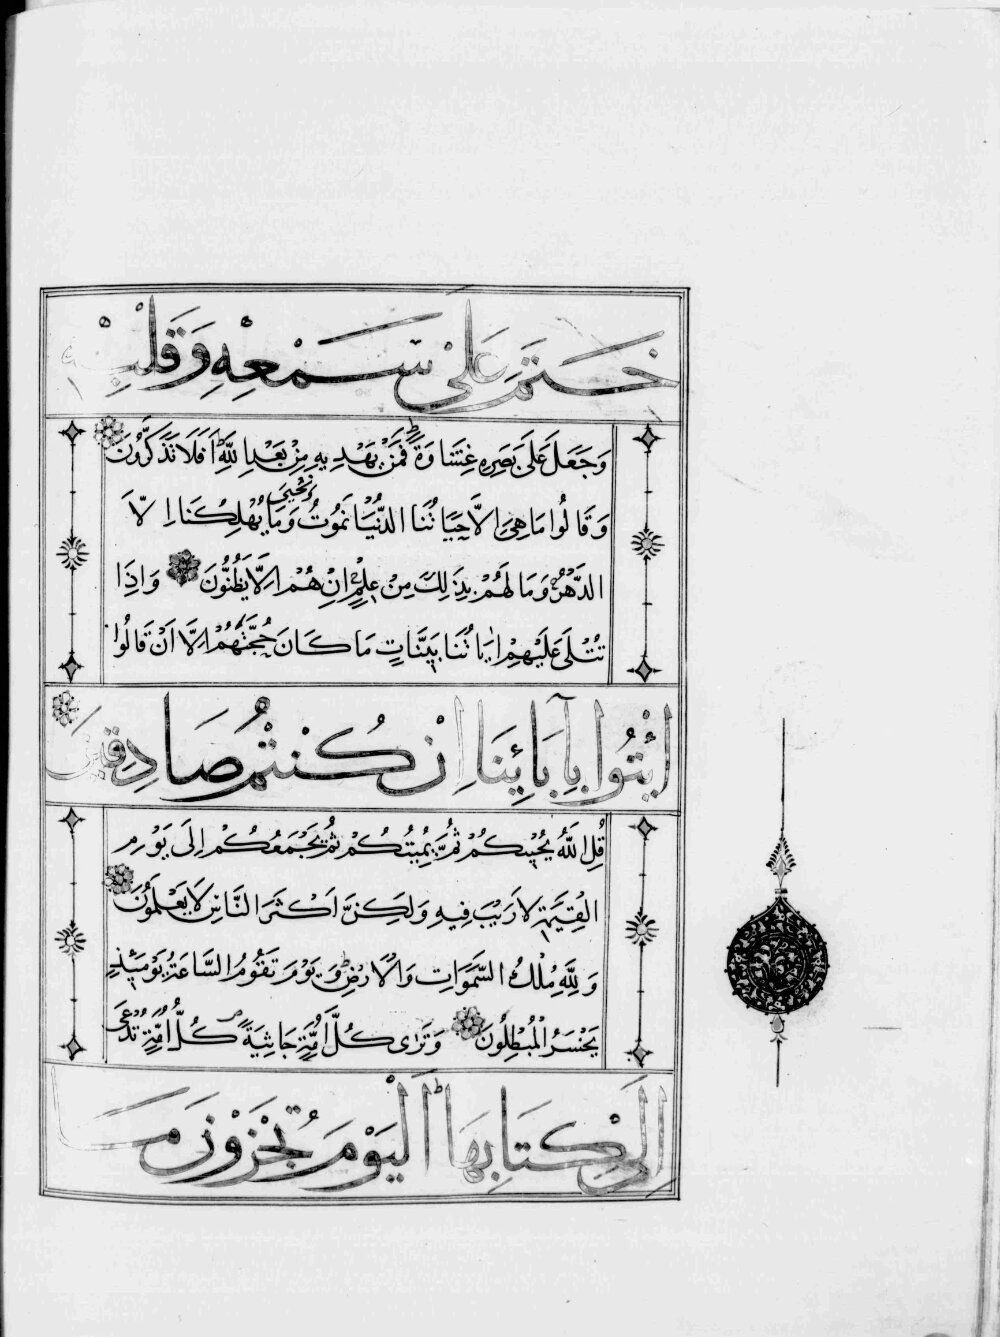 خَتَمَ عَلَىٰ سَمْعِهِ وَقَلْبِهِ
وَجَعَلَ عَلَىٰ بَصَرِهِ غِشَاوَةً فَمَنْ يَهْدِيهِ مِنْ بَعْدِ اللَّهِ أَفَلَا تَذَكَّرُونَ
وَقَالُوا مَا هِيَ إِلَّا حَيَاتُنَا الدُّنْيَا نَمُوتُ وَنَحْيَىٰ وَمَا يُهْلِكُنَا إِلَّا
الدَّهْرُ وَمَا لَهُمْ بِذَٰلِكَ مِنْ عِلْمٍ إِنْ هُمْ إِلَّا يَظُنُّونَ وَإِذَا
تُتْلَىٰ عَلَيْهِمْ اٰيَاتُنَا بَيِّنَاتٍ مَا كَانَ حُجَّتَهُمْ إِلَّا أَنْ قَالُوا
ائْتُوا بِآبَائِنَا إِنْ كُنْتُمْ صَادِقِينَ
قُلِ اللَّهُ يُحْيِيكُمْ ثُمَّ يُمِيتُكُمْ ثُمَّ يَجْمَعُكُمْ إِلَىٰ يَوْمِ
الْقِيٰمَةِ لَا رَيْبَ فِيهِ وَلَٰكِنَّ أَكْثَرَ النَّاسِ لَا يَعْلَمُونَ
وَلِلَّهِ مُلْكُ السَّمَوَاتِ وَالْأَرْضِ وَيَوْمَ تَقُومُ السَّاعَةُ يَوْمَئِذٍ
يَخْسَرُ الْمُبْطِلُونَ وَتَرَىٰ كُلَّ أُمَّةٍ جَاثِيَةً كُلُّ أُمَّةٍ تُدْعَىٰ
إِلَىٰ كِتَابِهَا الْيَوْمَ تُجْزَوْنَ مَا